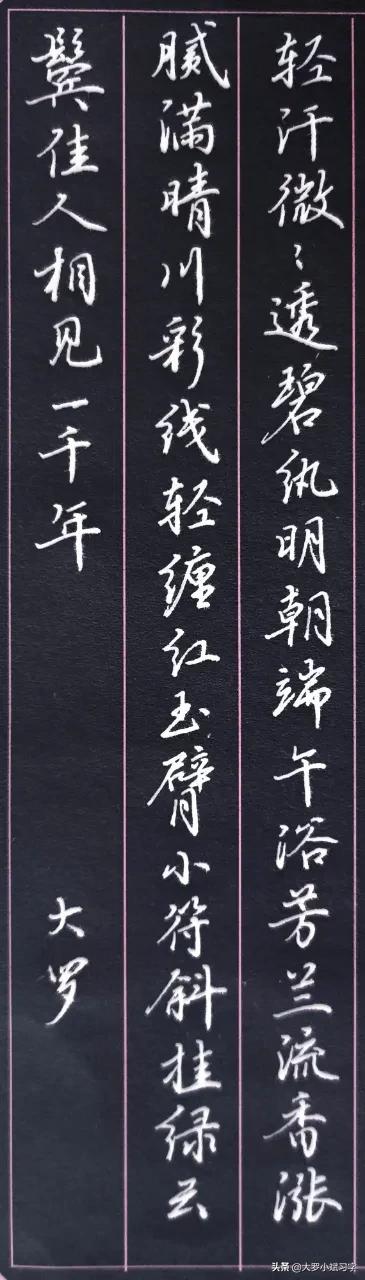 轻汗微〻透碧纨明朝端午浴芳兰流香涨
腻满晴川彩线轻缠红玉臂小符斜挂绿云
鬓佳人相见一千年
大罗
头条 @大罗小斌习字